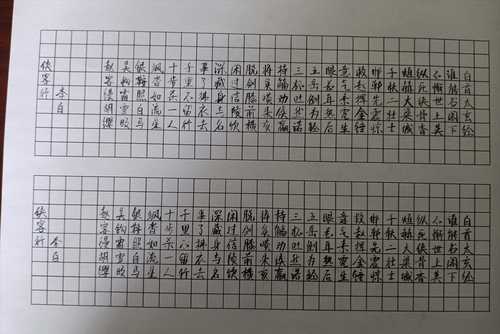 侠客行
李白
赵客缦胡缨
吴钩霜雪明
银鞍照白马
飒沓如流星
十步杀一人
千里不留行
事了拂衣去
深藏身与名
闲过信陵饮
脱剑膝前横
将炙啖朱亥
持觞劝侯嬴
三杯吐然诺
五岳倒为轻
眼花耳热后
意气素霓生
救赵挥金槌
邯郸先震惊
千秋二壮士
烜赫大梁城
纵死侠骨香
不惭世上英
谁能书阁下
白首太玄经
侠客行
李白
赵客缦胡缨
吴钩霜雪明
银鞍照白马
飒沓如流星
十步杀一人
千里不留行
事了拂衣去
深藏身与名
闲过信陵饮
脱剑膝前横
将炙啖朱亥
持觞劝侯嬴
三杯吐然诺
五岳倒为轻
眼花耳热后
意气素霓生
救赵挥金槌
邯郸先震惊
千秋二壮士
烜赫大梁城
纵死侠骨香
不惭世上英
谁能书阁下
白首太玄经